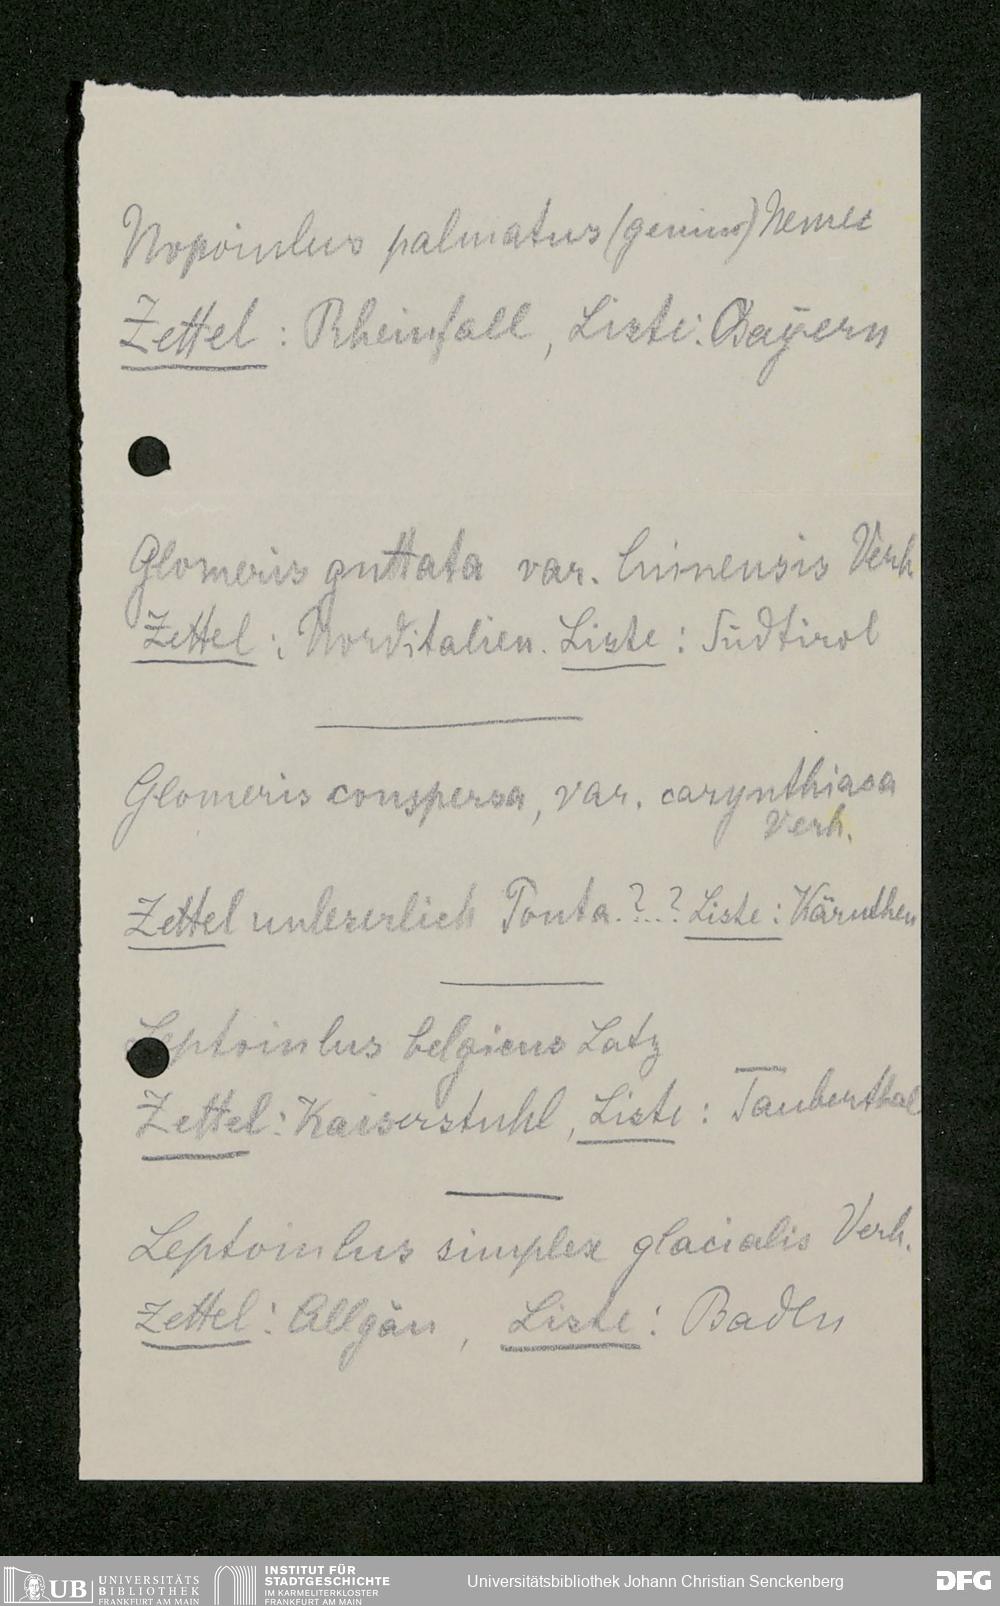 Nopoiulus palmatus (genuinus) Nemec
Zettel : Rheinfall, Liste: Bayern
Glomeris guttata var. luinensis Verh.
Zettel : Norditalien. Liste : Südtirol
Glomeris conspersa, var. carynthiaca
Verh.
Zettel unleserlich Ponta.?..? Liste : Kärnthen
Leptoiulus belgicus Latz
Zettel : Kaiserstuhl, Liste : Taubertal
Leptoiulus simplex glacialis Verh.
Zettel : Allgäu, Liste : Baden
UB UNIVERSITÄTS
BIBLIOTHEK
FRANKFURT AM MAIN
INSTITUT FÜR
STADTGESCHICHTE
IM KARMELITERKLOSTER
FRANKFURT AM MAIN
Universitätsbibliothek Johann Christian Senckenberg
DFG